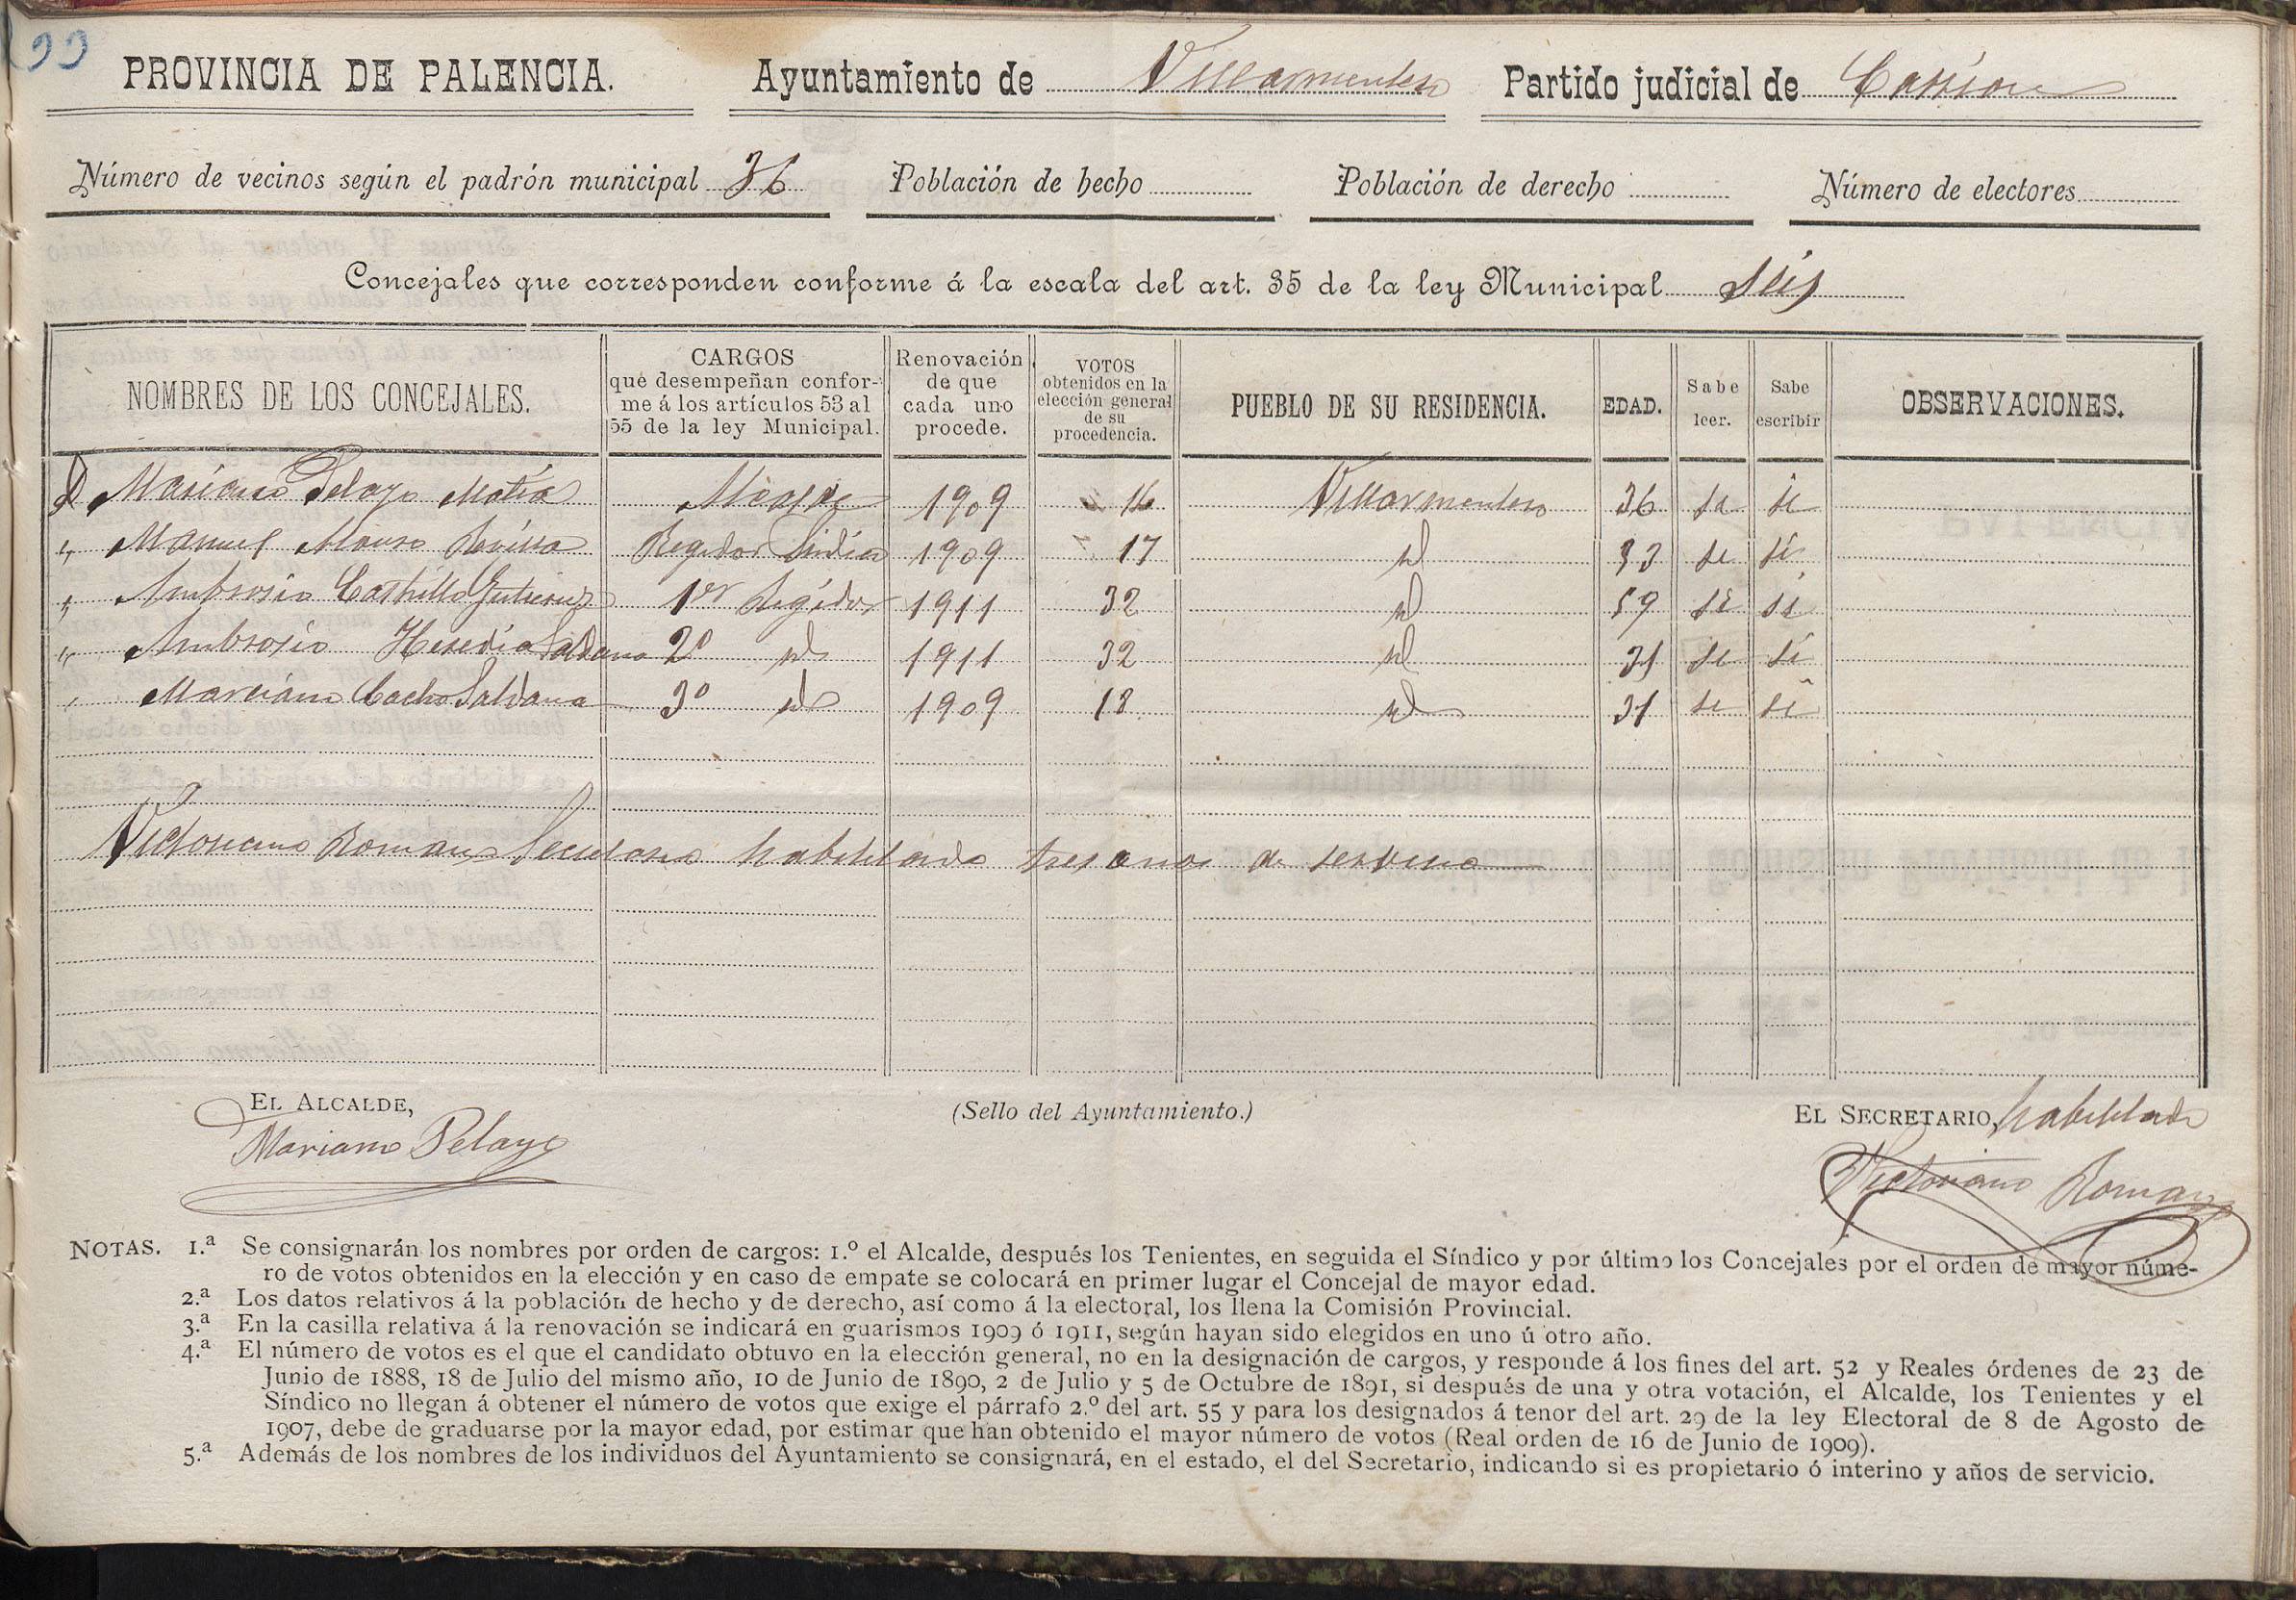 PROVINCIA DE PALENCIA. Ayuntamiento de Villarmentero Partido judicial de Carrion
Número de vecinos según el padrón municipal 36 Población de hecho Población de derecho Número de electores
Concejales que corresponden conforme á la escala del art. 35 de la ley Municipal Séis
NOMBRES DE LOS CONCEJALES. CARGOS que desempeñan conforme á los artículos 53 al 55 de la ley Municipal. Renovación de que cada uno procede. VOTOS obtenidos en la elección general de su procedencia. PUEBLO DE SU RESIDENCIA. EDAD. Sabe leer. Sabe escribir OBSERVACIONES.
D Mariano Pelayo Matia Alcalde 1909 16 Villarmentero 36 si si
" Manuel Alonso Regidor Sindico 1909 17 id 33 si si
" Ambrosio Castrillo Gutierrez 1er Regidor 1911 32 id 59 si si
" Ambrosio Heredia Saldaña 2º id 1911 32 id 31 si si
" Marciano Cacho Saldaña 3º id 1909 18 id 31 si si
Victoriano Roman Secretario habilitado tres años de servicio
EL ALCALDE, (Sello del Ayuntamiento.) EL SECRETARIO, habilitado
Mariano Pelayo Victoriano Roman
NOTAS. 1.ª Se consignarán los nombres por orden de cargos: 1.º el Alcalde, después los Tenientes, en seguida el Síndico y por último los Concejales por el orden de mayor núme-
ro de votos obtenidos en la elección y en caso de empate se colocará en primer lugar el Concejal de mayor edad.
2.ª Los datos relativos á la población de hecho y de derecho, así como á la electoral, los llena la Comisión Provincial.
3.ª En la casilla relativa á la renovación se indicará en guarismos 1909 ó 1911, según hayan sido elegidos en uno ú otro año.
4.ª El número de votos es el que el candidato obtuvo en la elección general, no en la designación de cargos, y responde á los fines del art. 52 y Reales órdenes de 23 de
Junio de 1888, 18 de Julio del mismo año, 10 de Junio de 1890, 2 de Julio y 5 de Octubre de 1891, si después de una y otra votación, el Alcalde, los Tenientes y el
Síndico no llegan á obtener el número de votos que exige el párrafo 2.º del art. 55 y para los designados á tenor del art. 29 de la ley Electoral de 8 de Agosto de
1907, debe de graduarse por la mayor edad, por estimar que han obtenido el mayor número de votos (Real orden de 16 de Junio de 1909).
5.ª Además de los nombres de los individuos del Ayuntamiento se consignará, en el estado, el del Secretario, indicando si es propietario ó interino y años de servicio.